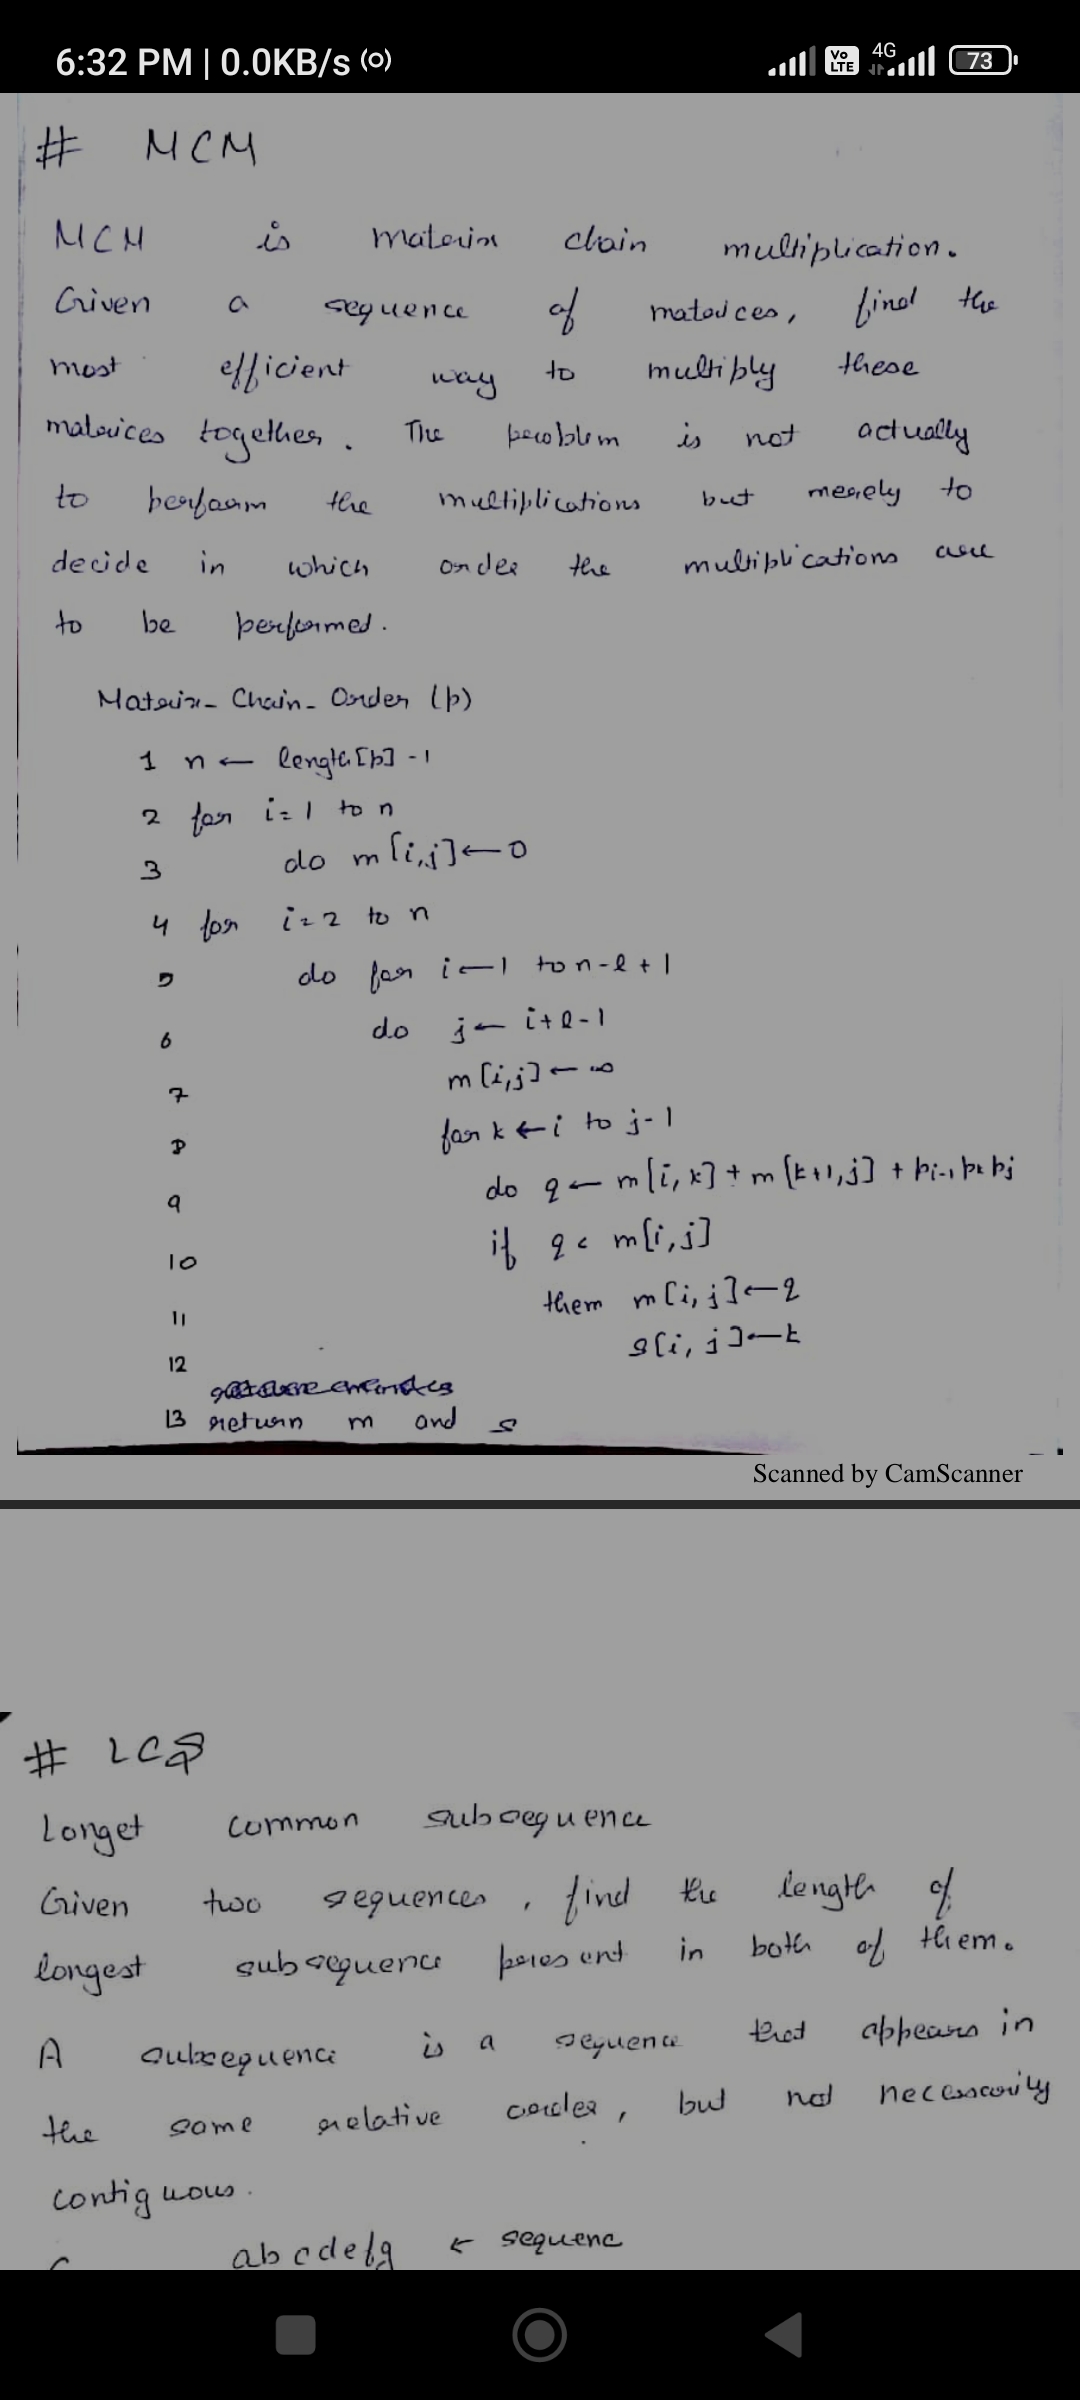 6:32 PM | 0.0KB/s
Vo LTE 4G 73
# MCM
MCM is matrix chain multiplication.
Given a sequence of matrices, find the
most efficient way to multiply these
matrices together. The problem is not actually
to perform the multiplications but merely to
decide in which order the multiplications are
to be performed.
Matrix-Chain-Order (p)
1 n ← length[p] - 1
2 for i = 1 to n
3 do m[i,j] ← 0
4 for i = 2 to n
5 do for i ← 1 to n - l + 1
6 do j ← i + l - 1
7 m[i,j] ← ∞
8 for k ← i to j - 1
9 do q ← m[i,k] + m[k+1,j] + pi-1 pk pj
10 if q < m[i,j]
11 them m[i,j] ← q
12 s[i,j] ← k
13 return m and s
Scanned by CamScanner
# LCS
Longet common subsequence
Given two sequences, find the length of
longest subsequence present in both of them.
A subsequence is a sequence that appears in
the same relative order, but not necessarily
contiguous.
abcdefg ← sequenc